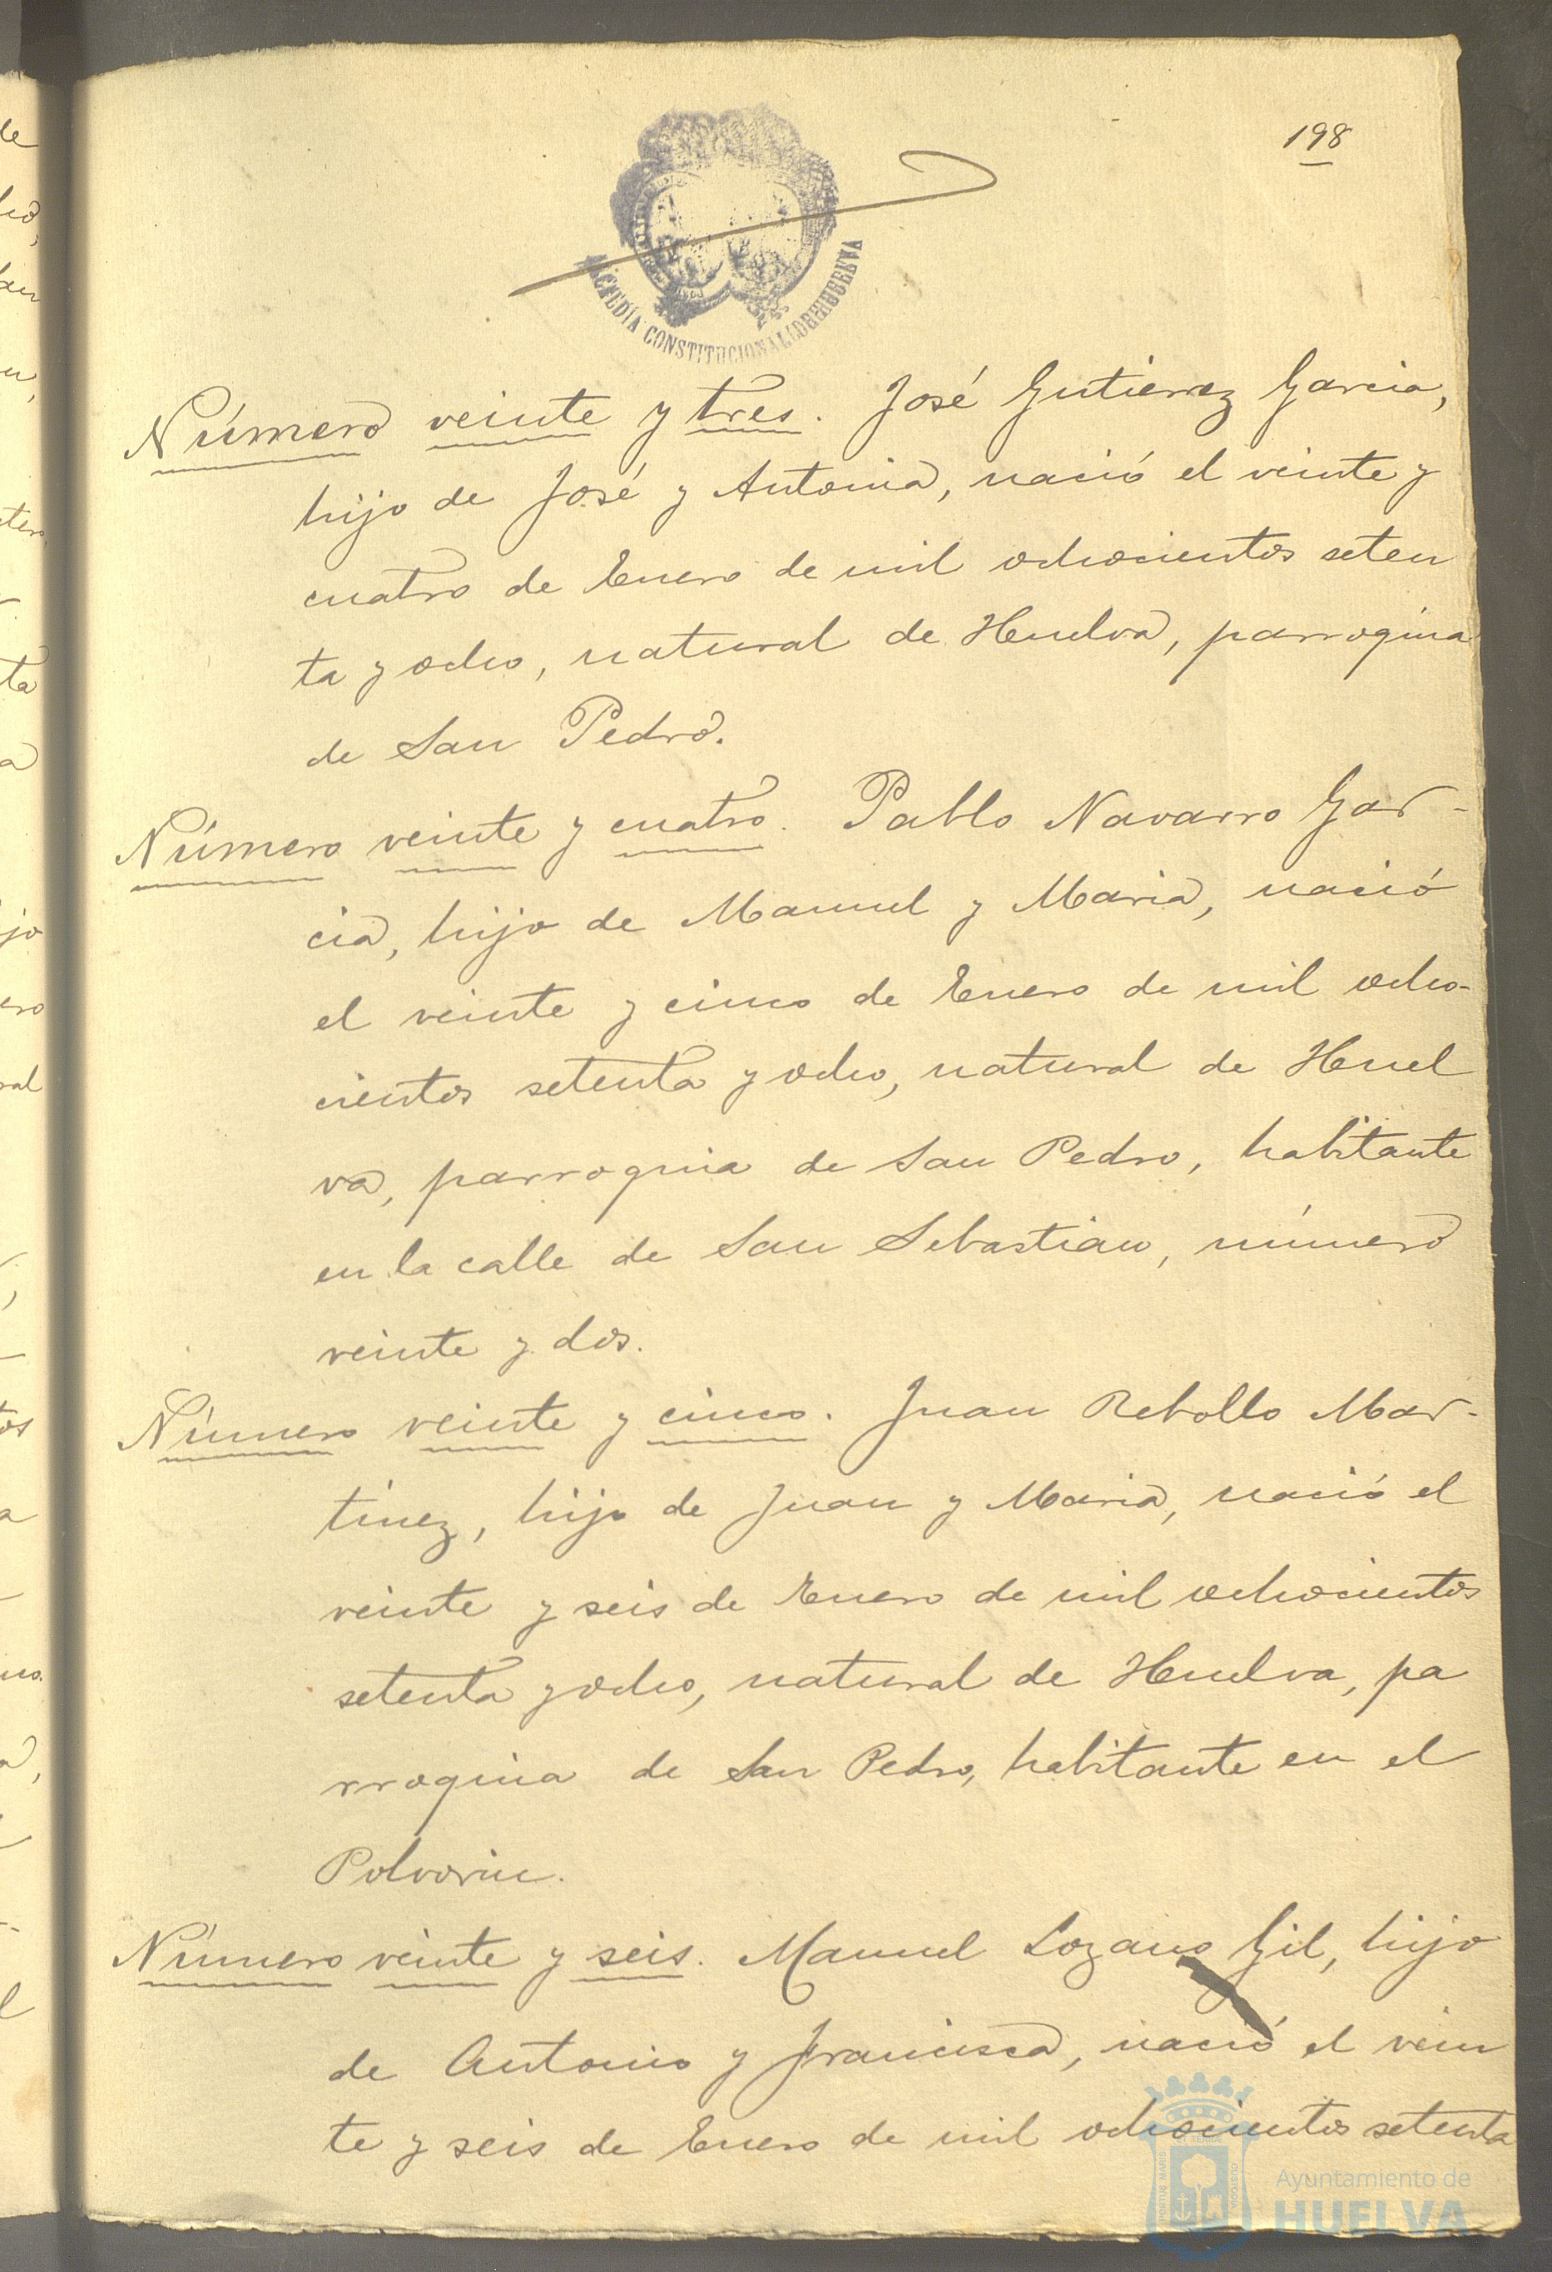 198
ALCALDÍA CONSTITUCIONAL DE HUELVA
Número veinte y tres. José Gutierrez Garcia,
hijo de José y Antonia, nació el veinte y
cuatro de Enero de mil ochocientos seten
ta y ocho, natural de Huelva, parroquia
de San Pedro.
Número veinte y cuatro. Pablo Navarro Gar-
cia, hijo de Manuel y Maria, nació
el veinte y cinco de Enero de mil ocho-
cientos setenta y ocho, natural de Huel
va, parroquia de San Pedro, habitante
en la calle de San Sebastian, número
veinte y dos.
Número veinte y cinco. Juan Rebollo Mar-
tinez, hijo de Juan y Maria, nació el
veinte y seis de Enero de mil ochocientos
setenta y ocho, natural de Huelva, pa
rroquia de San Pedro, habitante en el
Polvorin.
Número veinte y seis. Manuel Lozano Gil, hijo
de Antonio y Francisca, nació el vein
te y seis de Enero de mil ochocientos setenta
Ayuntamiento de
HUELVA